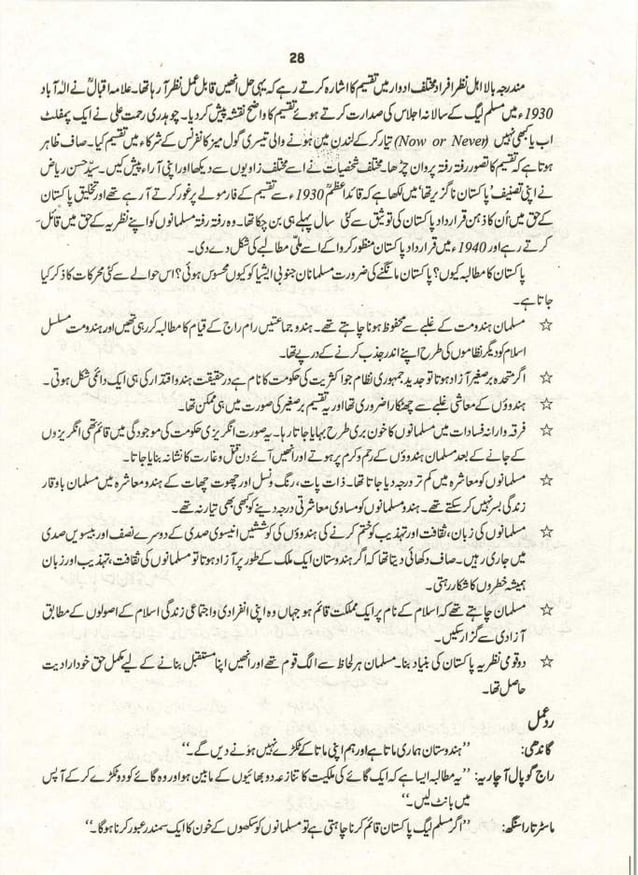 28
مندرجہ بالا اہل نظر افراد مختلف ادوار میں تقسیم کا اشارہ کرتے رہے کہ یہی حل انھیں قابل عمل نظر آ رہا تھا۔ علامہ اقبالؒ نے الٰہ آباد
1930ء میں مسلم لیگ کے سالانہ اجلاس کی صدارت کرتے ہوئے تقسیم کا واضح نقشہ پیش کر دیا۔ چوہدری رحمت علی نے ایک پمفلٹ
اب یا کبھی نہیں (Now or Never) تیار کر کے لندن میں ہونے والی تیسری گول میز کانفرنس کے شرکاء میں تقسیم کیا۔ صاف ظاہر
ہوتا ہے کہ تقسیم کا تصور رفتہ رفتہ پروان چڑھا۔ مختلف شخصیات نے اسے مختلف زاویوں سے دیکھا اور اپنی آراء پیش کیں۔ سیّد حسن ریاض
نے اپنی تصنیف 'پاکستان ناگزیر تھا' میں لکھا ہے کہ قائداعظمؒ 1930ء سے تقسیم کے فارمولے پر غور کرتے آ رہے تھے اور تخلیق پاکستان
کے حق میں اُن کا ذہن قرارداد پاکستان کی توثیق سے کئی سال پہلے ہی بن چکا تھا۔ وہ رفتہ رفتہ مسلمانوں کو اپنے نظریہ کے حق میں قائل
کرتے رہے اور 1940ء میں قرارداد پاکستان منظور کروا کے اسے ملّی مطالبے کی شکل دے دی۔
پاکستان کا مطالبہ کیوں؟ پاکستان مانگنے کی ضرورت مسلمانان جنوبی ایشیا کو کیوں محسوس ہوئی؟ اس حوالے سے کئی محرکات کا ذکر کیا
جاتا ہے۔
☆ مسلمان ہندومت کے غلبے سے محفوظ ہونا چاہتے تھے۔ ہندو جماعتیں رام راج کے قیام کا مطالبہ کر رہی تھیں اور ہندومت مسلسل
اسلام کو دیگر نظاموں کی طرح اپنے اندر جذب کرنے کے درپے تھا۔
☆ اگر متحدہ برصغیر آزاد ہوتا تو جدید جمہوری نظام جو اکثریت کی حکومت کا نام ہے درحقیقت ہندو اقتدار کی ہی ایک دائمی شکل ہوتی۔
☆ ہندوؤں کے معاشی غلبے سے چھٹکارا ضروری تھا اور یہ تقسیم برصغیر کی صورت میں ہی ممکن تھا۔
☆ فرقہ دارانہ فسادات میں مسلمانوں کا خون بری طرح بہایا جاتا رہا۔ یہ صورت انگریزی حکومت کی موجودگی میں قائم تھی انگریزوں
کے جانے کے بعد مسلمان ہندوؤں کے رحم و کرم پر ہوتے اور انھیں آئے دن قتل و غارت کا نشانہ بنایا جاتا۔
☆ مسلمانوں کو معاشرہ میں کم تر درجہ دیا جاتا تھا۔ ذات پات، رنگ و نسل اور چھوت چھات کے ہندو معاشرہ میں مسلمان باوقار
زندگی بسر نہیں کر سکتے تھے۔ ہندو مسلمانوں کو مساوی معاشرتی درجہ دینے کو کبھی بھی تیار نہ تھے۔
☆ مسلمانوں کی زبان، ثقافت اور تہذیب کو ختم کرنے کی ہندوؤں کی کوششیں انیسویں صدی کے دوسرے نصف اور بیسویں صدی
میں جاری رہیں۔ صاف دکھائی دیتا تھا کہ اگر ہندوستان ایک ملک کے طور پر آزاد ہوتا تو مسلمانوں کی ثقافت، تہذیب اور زبان
ہمیشہ خطروں کا شکار رہتی۔
☆ مسلمان چاہتے تھے کہ اسلام کے نام پر ایک مملکت قائم ہو جہاں وہ اپنی انفرادی و اجتماعی زندگی اسلام کے اصولوں کے مطابق
آزادی سے گزار سکیں۔
☆ دو قومی نظریہ پاکستان کی بنیاد بنا۔ مسلمان ہر لحاظ سے الگ قوم تھے اور انھیں اپنا مستقبل بنانے کے لیے مکمل حق خودارادیت
حاصل تھا۔
ردعمل
گاندھی: ''ہندوستان ہماری ماتا ہے اور ہم اپنی ماتا کے ٹکڑے نہیں ہونے دیں گے۔''
راج گوپال آچاریہ: ''یہ مطالبہ ایسا ہے کہ ایک گائے کی ملکیت کا تنازعہ دو بھائیوں کے مابین ہو اور وہ گائے کو دو ٹکڑے کر کے آپس
میں بانٹ لیں۔''
ماسٹر تارا سنگھ: ''اگر مسلم لیگ پاکستان قائم کرنا چاہتی ہے تو مسلمانوں کو سکھوں کے خون کا ایک سمندر عبور کرنا ہوگا۔''